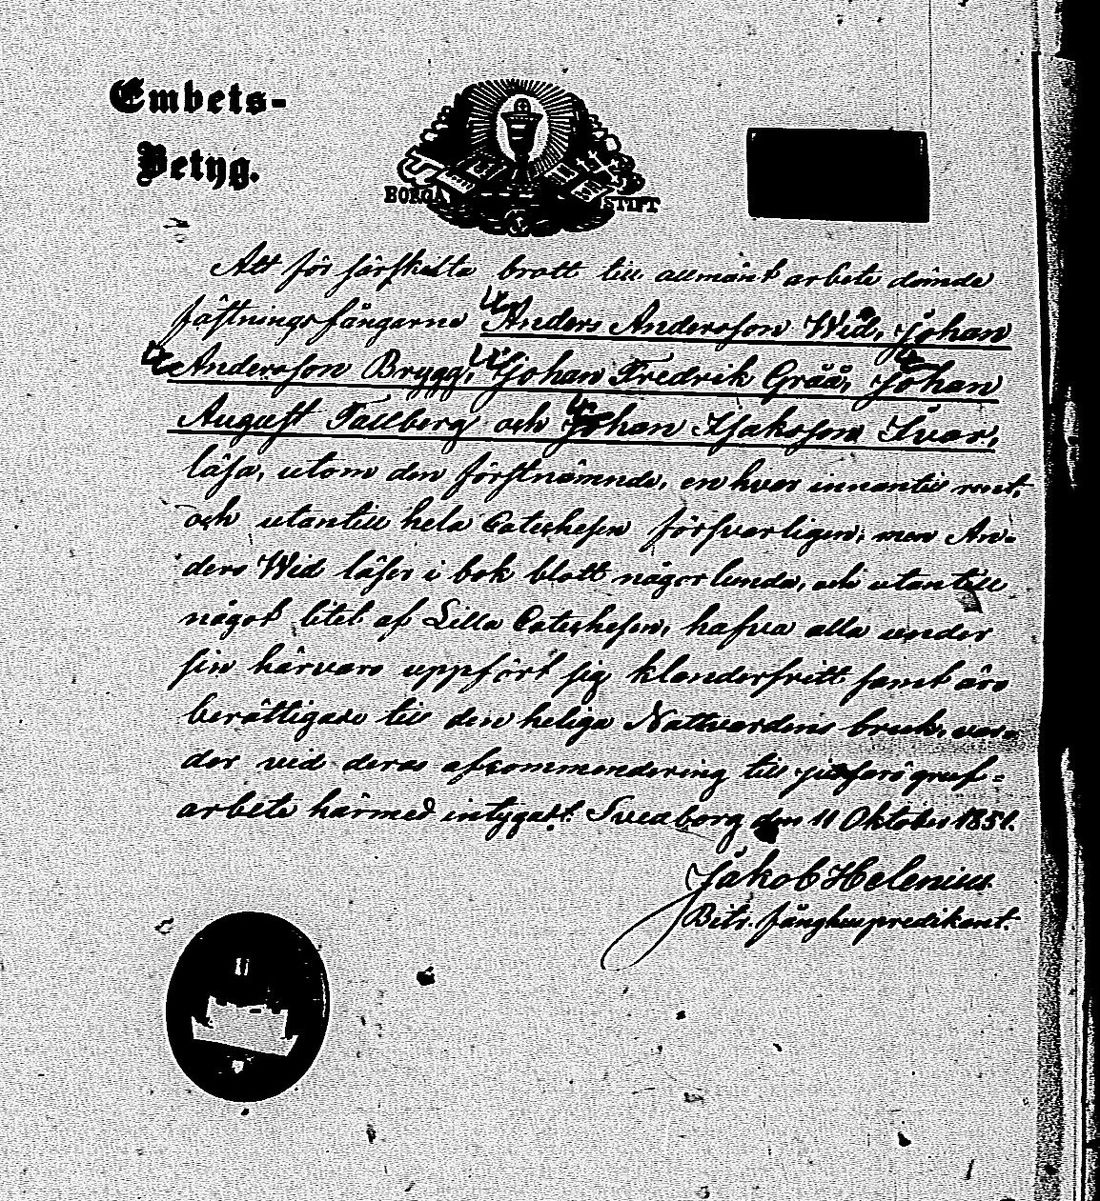 Embets-
Betyg.
BORGÅ STIFT
Att för särskelta brott till allmänt arbete dömde
fästningsfångarne Anders Andersson Wid, Johan
Andersson Brygg, Johan Fredrik Gråå, Johan
August Fallberg och Johan Isaksson Svar,
läsa, utom den förstnämnde, en hvar innantill rent,
och utantill hela Catechesen försvarligen; men An-
ders Wid läser i bok blott någorlunda, och utantill
något litet af Lilla Catechesen, hafva alla under
sin härvaro uppfört sig klanderfritt samt äro
berättigade till den heliga Nattvardens bruk, var-
der vid deras afkommendering till
arbete härmed intygadt. Sveaborg den 11 Oktober 1851.
Jakob Helenius
Bitr. fånghuspredikant.